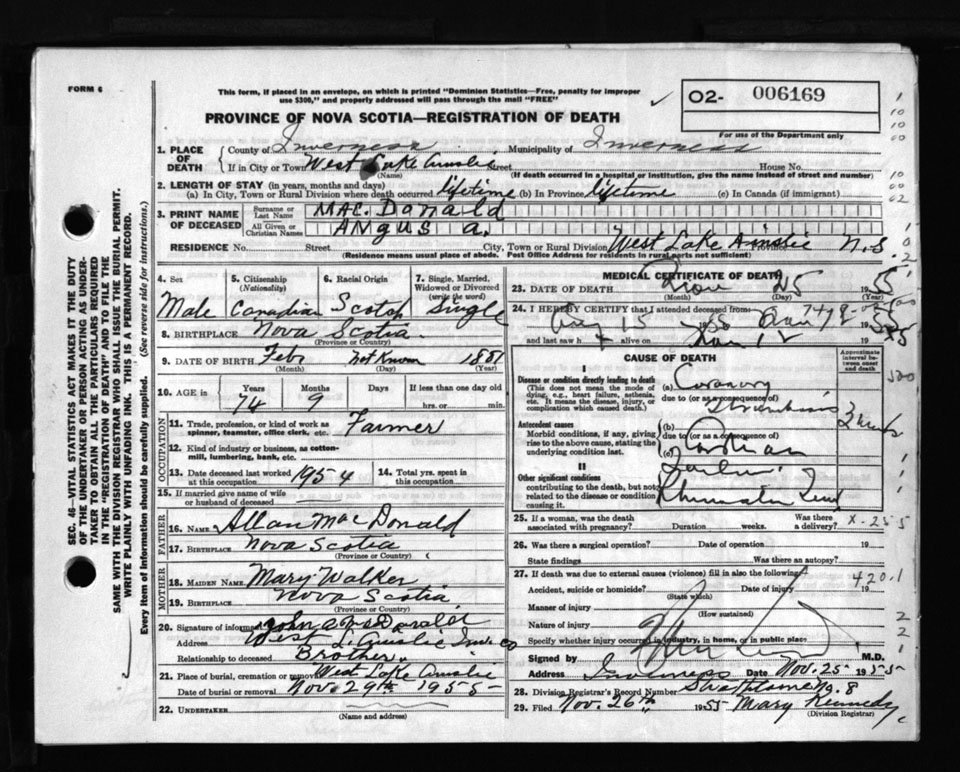 FORM 6
This form, if placed in an envelope, on which is printed "Dominion Statistics—Free, penalty for improper
use $300," and properly addressed will pass through the mail "FREE"
O2- 006169
For use of the Department only
PROVINCE OF NOVA SCOTIA—REGISTRATION OF DEATH
1. PLACE OF DEATH
County of Inverness Municipality of Inverness
If in City or Town West Lake Ainslie Street House No.
(Name) (If death occurred in a hospital or institution, give the name instead of street and number)
2. LENGTH OF STAY (in years, months and days)
(a) In City, Town or Rural Division where death occurred lifetime (b) In Province lifetime (c) In Canada (if immigrant)
3. PRINT NAME OF DECEASED
Surname or Last Name MAC.Donald
All Given or Christian Names ANGUS A.
RESIDENCE No. Street City, Town or Rural Division West Lake Ainslie Province N.S.
(Residence means usual place of abode. Post Office Address for residents in rural parts not sufficient)
4. Sex 5. Citizenship (Nationality) 6. Racial Origin 7. Single, Married, Widowed or Divorced (write the word)
Male Canadian Scotch Single
8. BIRTHPLACE Nova Scotia
(Province or Country)
9. DATE OF BIRTH Feb Not Known 1881
(Month) (Day) (Year)
10. AGE in Years Months Days If less than one day old
74 9 hrs. or min.
OCCUPATION
11. Trade, profession, or kind of work as spinner, teamster, office clerk, etc. Farmer
12. Kind of industry or business, as cotton-mill, lumbering, bank, etc.
13. Date deceased last worked at this occupation 1954 14. Total yrs. spent in this occupation
15. If married give name of wife or husband of deceased
FATHER
16. NAME Allan MacDonald
17. BIRTHPLACE Nova Scotia
(Province or Country)
MOTHER
18. MAIDEN NAME Mary Walker
19. BIRTHPLACE Nova Scotia
(Province or Country)
20. Signature of informant John A McDonald
Address West L. Ainslie Inv. Co
Relationship to deceased Brother.
21. Place of burial, cremation or removal West Lake Ainslie
Date of burial or removal Nov. 29th 1955
22. UNDERTAKER
(Name and address)
MEDICAL CERTIFICATE OF DEATH
23. DATE OF DEATH Nov 25 1955
(Month) (Day)
24. I HEREBY CERTIFY that I attended deceased from
Aug 15
and last saw h alive on 19
CAUSE OF DEATH
Approximate interval between onset and death
I
Disease or condition directly leading to death (a) Coronary
(This does not mean the mode of dying, e.g., heart failure, asthenia, etc. It means the disease, injury, or complication which caused death.)
due to (or as a consequence of)
Thrombosis
Antecedent causes (b)
Morbid conditions, if any, giving rise to the above cause, stating the underlying condition last.
due to (or as a consequence of)
(c)
II
Other significant conditions
contributing to the death, but not related to the disease or condition causing it.
25. If a woman, was the death associated with pregnancy? Duration weeks. Was there a delivery? X-255
26. Was there a surgical operation? Date of operation 19
State findings Was there an autopsy?
27. If death was due to external causes (violence) fill in also the following:
Accident, suicide or homicide? Date of injury 19 420.1
(State which)
Manner of injury
(How sustained)
Nature of injury
Specify whether injury occurred in industry, in home, or in public place
Signed by M.D.
Address Inverness Date Nov. 25 1955
28. Division Registrar's Record Number Strathlorne No. 8
29. Filed Nov. 26th 1955 Mary Kennedy
(Division Registrar)
SEC. 46—VITAL STATISTICS ACT MAKES IT THE DUTY
OF THE UNDERTAKER OR PERSON ACTING AS UNDER-
TAKER TO OBTAIN ALL THE PARTICULARS REQUIRED
IN THE "REGISTRATION OF DEATH" AND TO FILE THE
SAME WITH THE DIVISION REGISTRAR WHO SHALL ISSUE THE BURIAL PERMIT.
WRITE PLAINLY WITH UNFADING INK. THIS IS A PERMANENT RECORD.
Every item of Information should be carefully supplied. (See reverse side for instructions.)